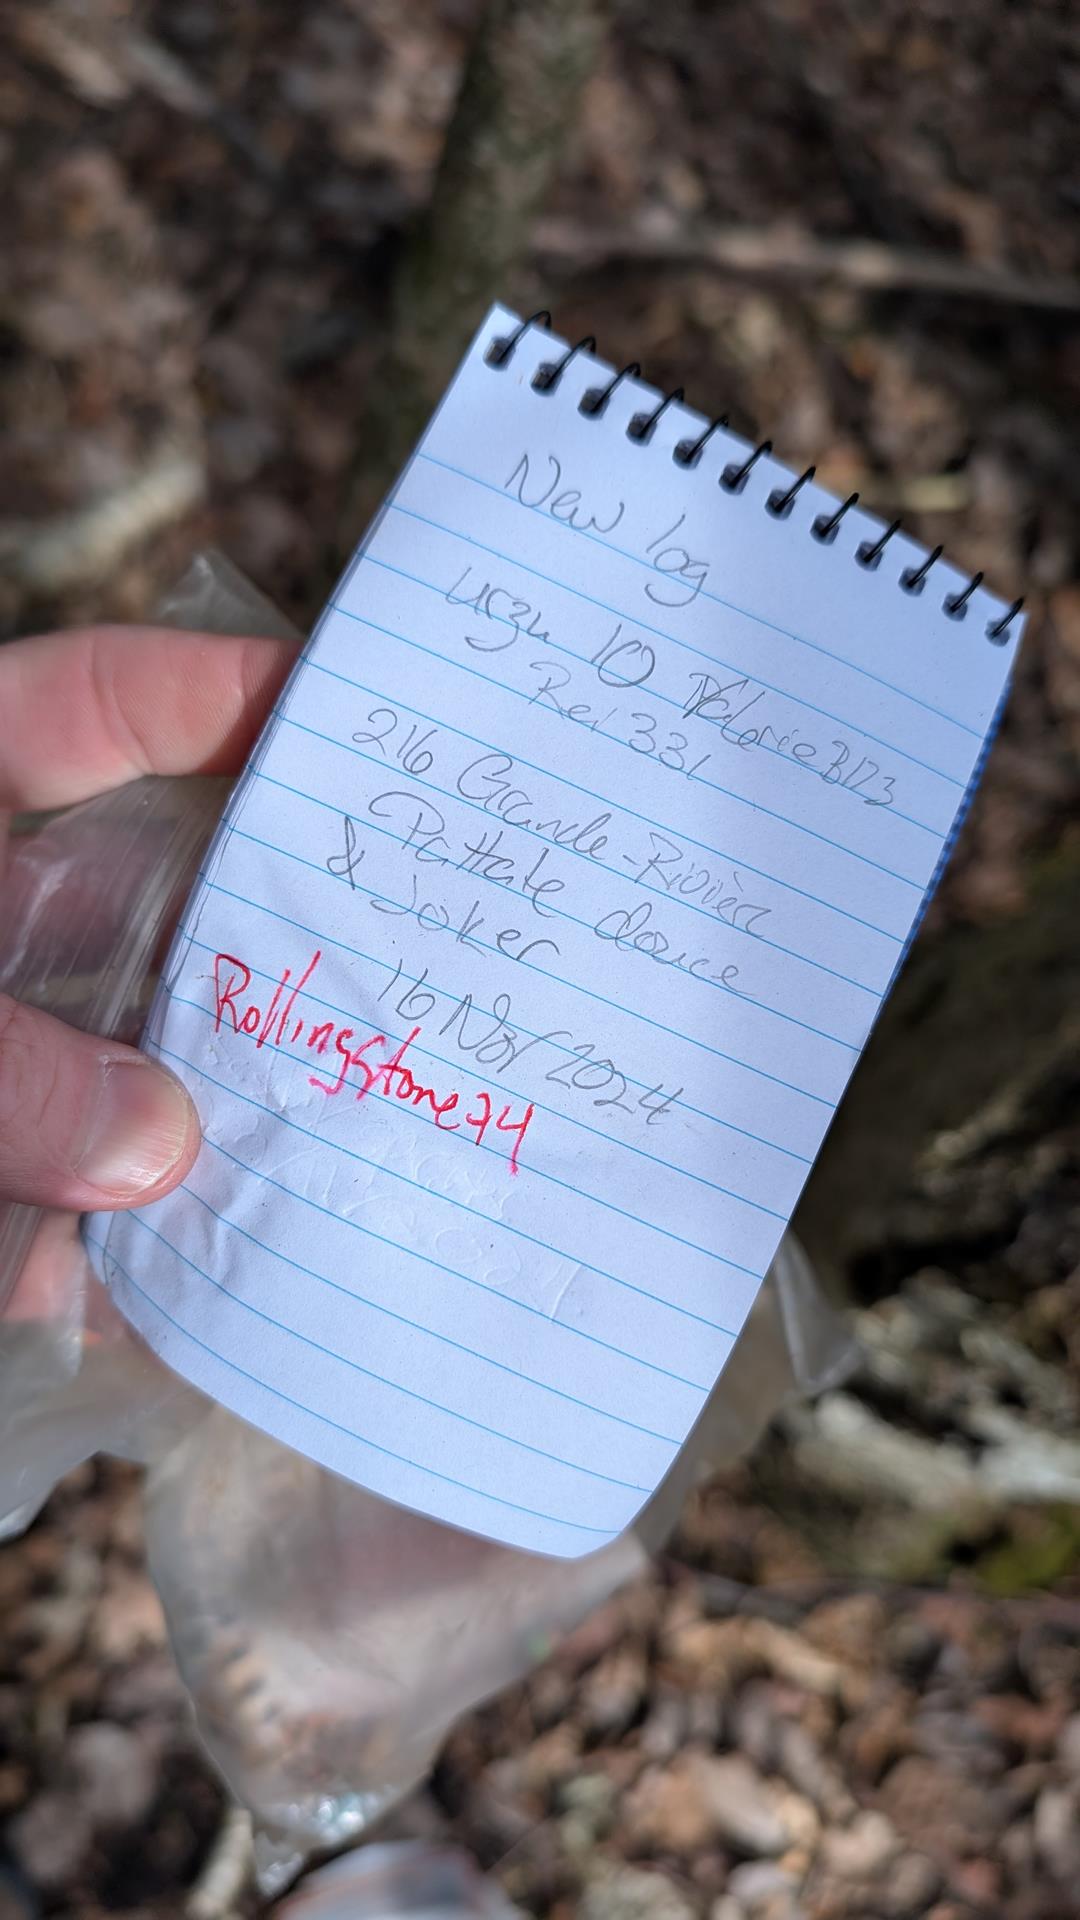 New log
urzu 10 ValerieB173
Rei 331
216 Grande-Rivièr
Pattate douce
& Joker
16 Nov 2024
Rollingstone74